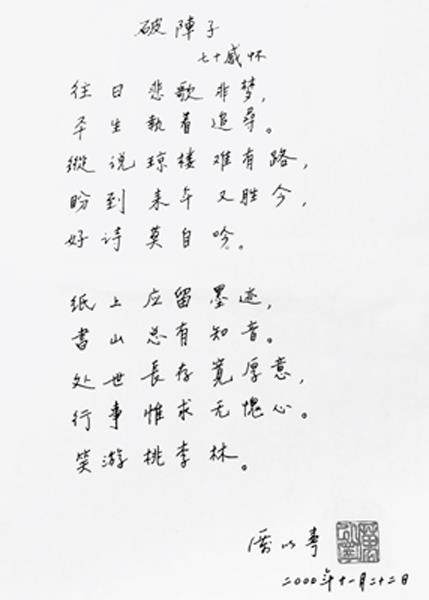 破陣子
七十感怀
往日悲歌非梦，
平生執着追尋。
縱说琼楼难有路，
盼到来年又胜今，
好诗莫自吟。
纸上应留墨迹，
書山总有知音。
处世長存寬厚意，
行事惟求无愧心。
笑游桃李林。
厲以寧
二000年十一月二十二日